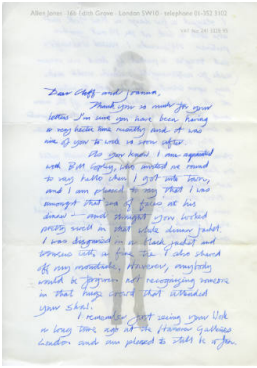 Allen Jones · 16a Edith Grove · London SW10 · telephone 01-352 5102
VAT No
Dear Cloff and Joanna,
Thank you so much for your
letter. I'm sure you have been having
a very hectic time recently and it was
nice of you to write so soon after.
As you know I am acquainted
with Bill Copley, who invited me round
to say hello when I got into town,
and I am pleased to say that I was
amongst that sea of faces at his
dinner – and thought you looked
pretty swell in that white dinner jacket.
I was disguised in a black jacket and
with a fine tie. I also shaved
off my moustache, however, anybody
would be forgiven not recognising someone
in that huge crowd that attended
your show!
I remember first seeing your work
a long time ago at the Hanover Galleries
London and am pleased to still be a fan.